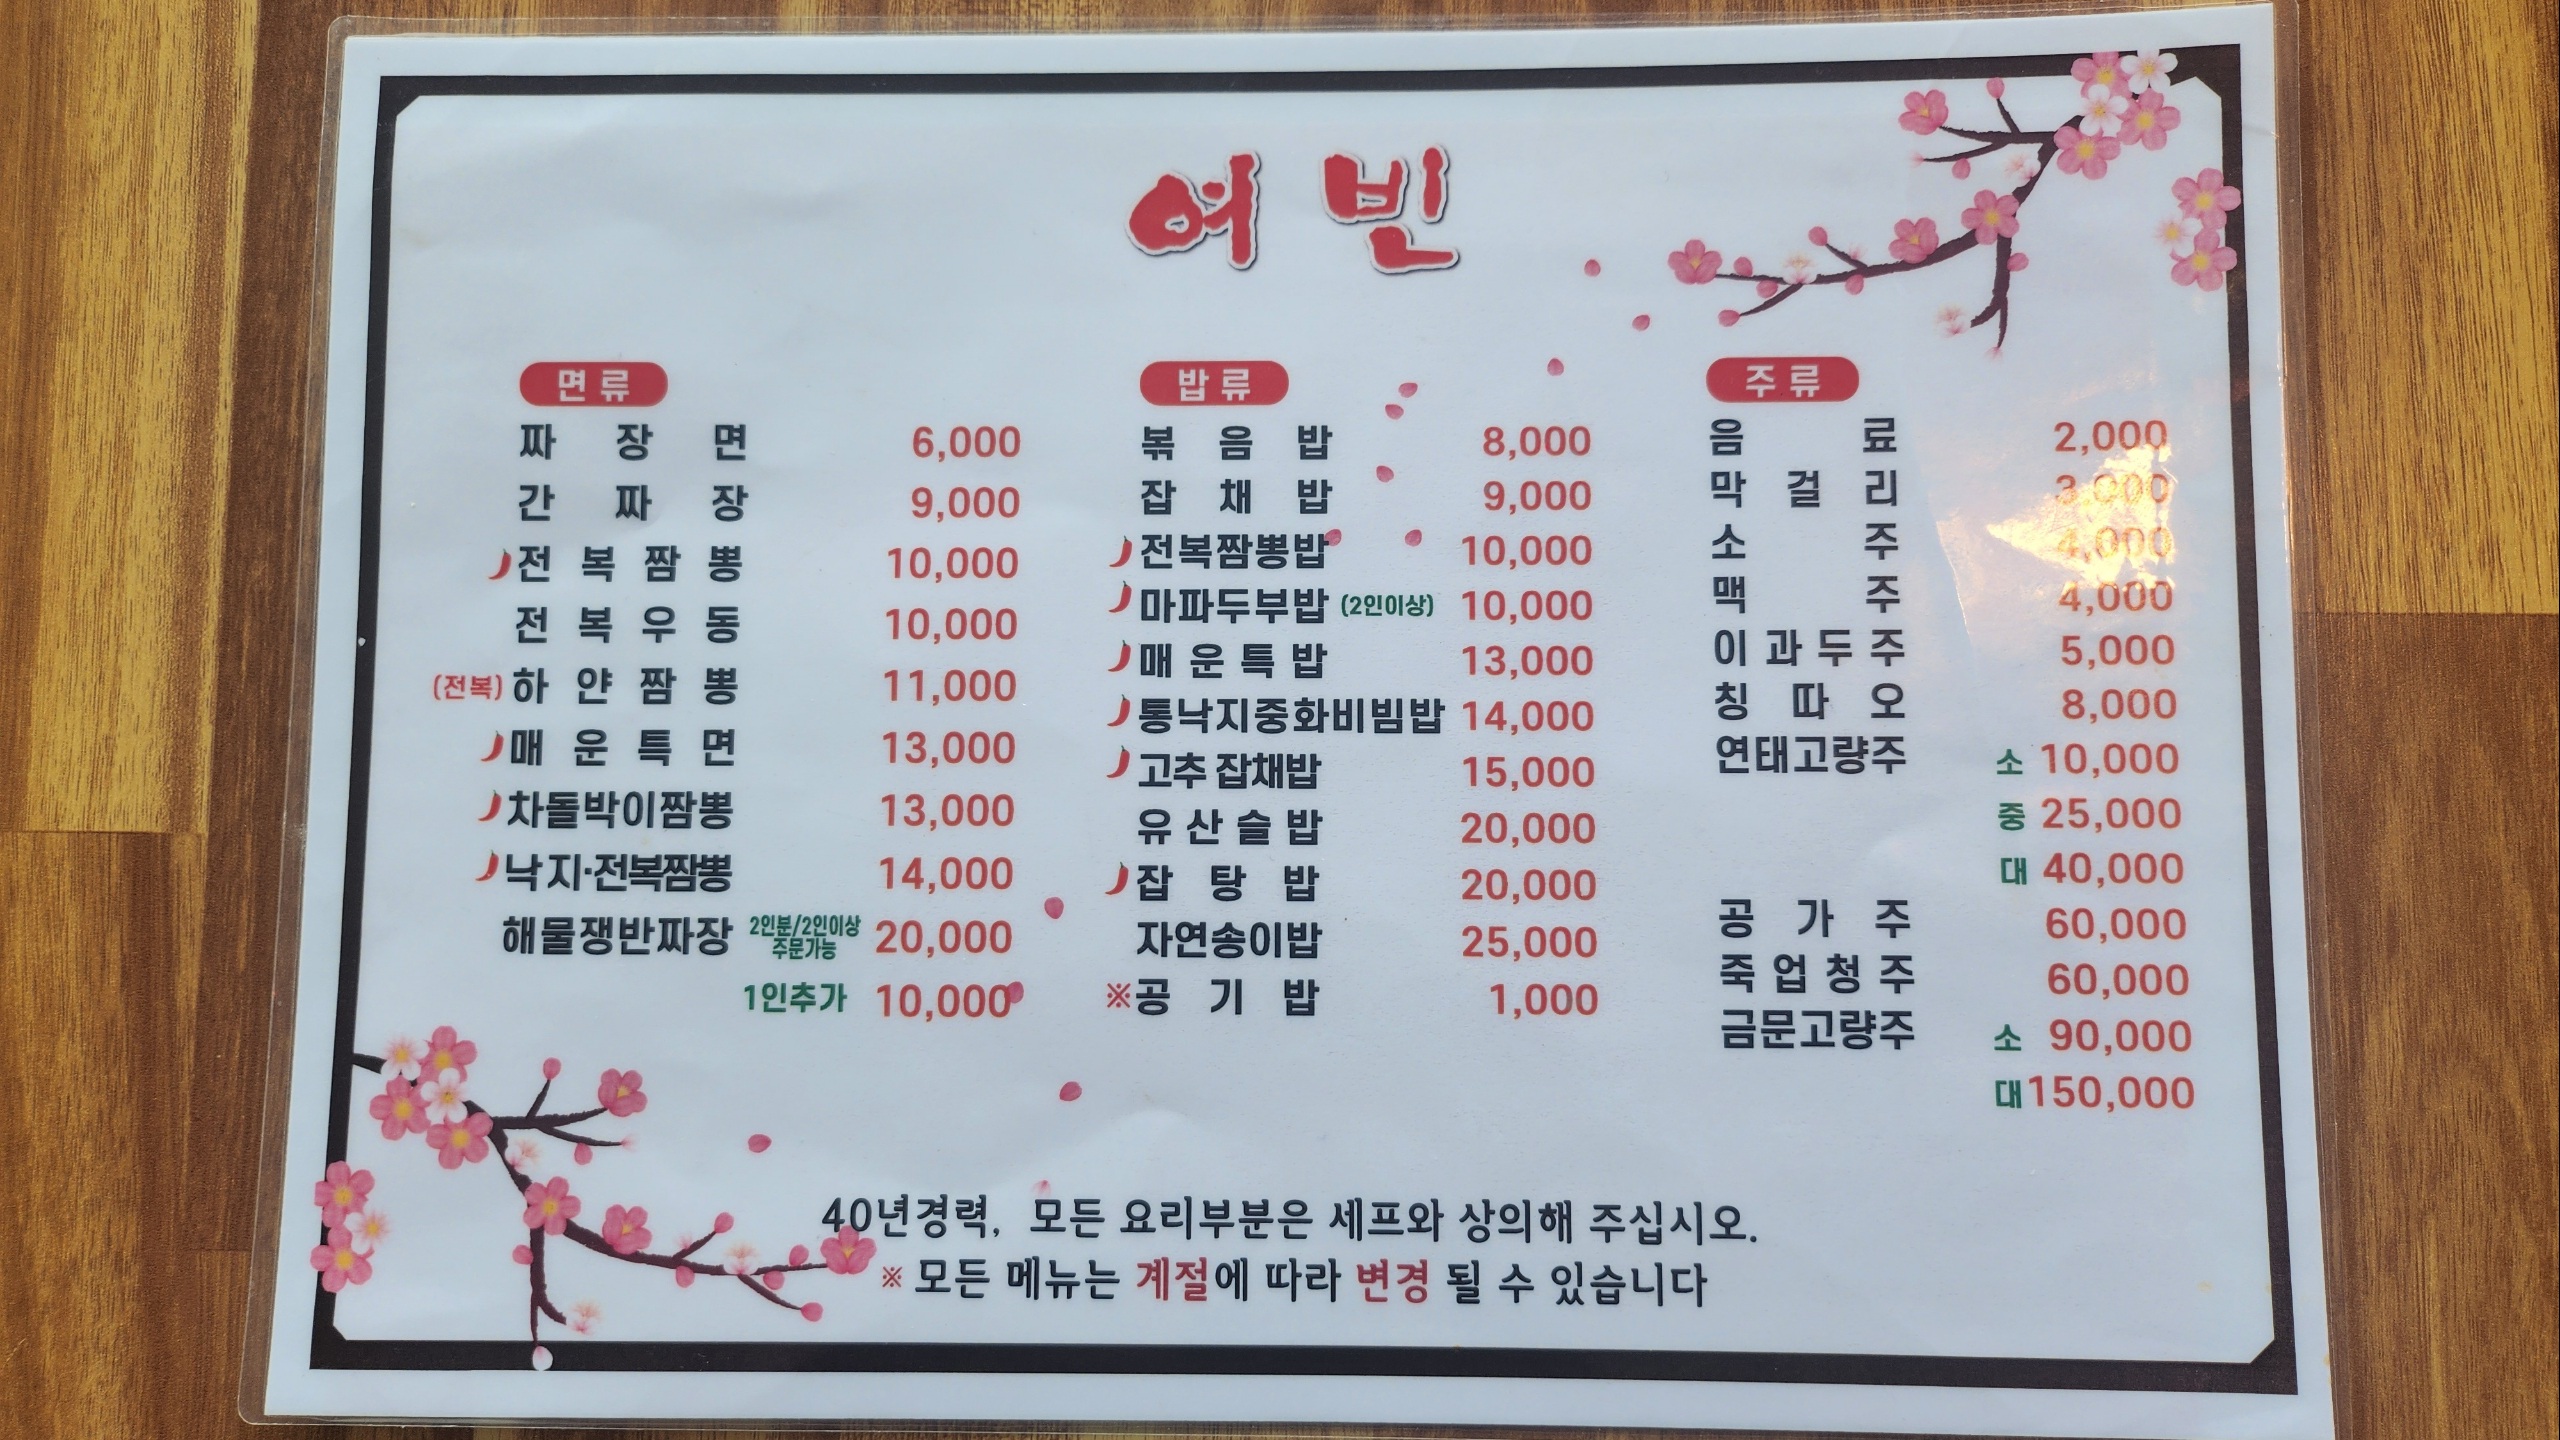 여빈
면류
짜장면 6,000
간짜장 9,000
전복짬뽕 10,000
전복우동 10,000
(전복) 하얀짬뽕 11,000
매운특면 13,000
차돌박이짬뽕 13,000
낙지·전복짬뽕 14,000
해물쟁반짜장 2인분/2인이상 주문가능 20,000
1인추가 10,000
밥류
볶음밥 8,000
잡채밥 9,000
전복짬뽕밥 10,000
마파두부밥 (2인이상) 10,000
매운특밥 13,000
통낙지중화비빔밥 14,000
고추잡채밥 15,000
유산슬밥 20,000
잡탕밥 20,000
자연송이밥 25,000
※공기밥 1,000
주류
음료 2,000
막걸리 3,000
소주 4,000
맥주 4,000
이과두주 5,000
칭따오 8,000
연태고량주 소 10,000
중 25,000
대 40,000
공가주 60,000
죽업청주 60,000
금문고량주 소 90,000
대 150,000
40년경력, 모든 요리부분은 세프와 상의해 주십시오.
※ 모든 메뉴는 계절에 따라 변경 될 수 있습니다